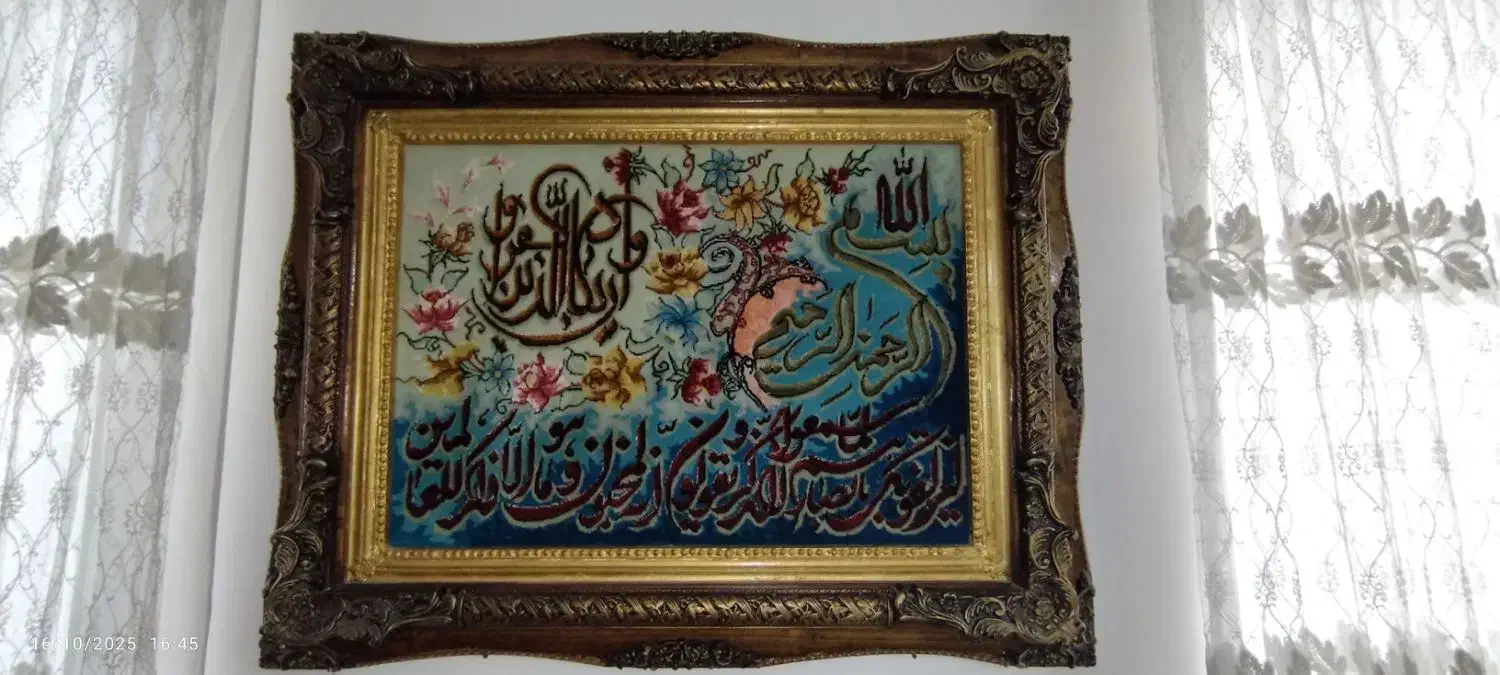 بسم الله الرحمن الرحيم
وان يكاد الذين كفروا
ليزلقونك بابصارهم لما سمعوا الذكر ويقولون انه لمجنون وما هو الا ذكر للعالمين
16/10/2025 16:45